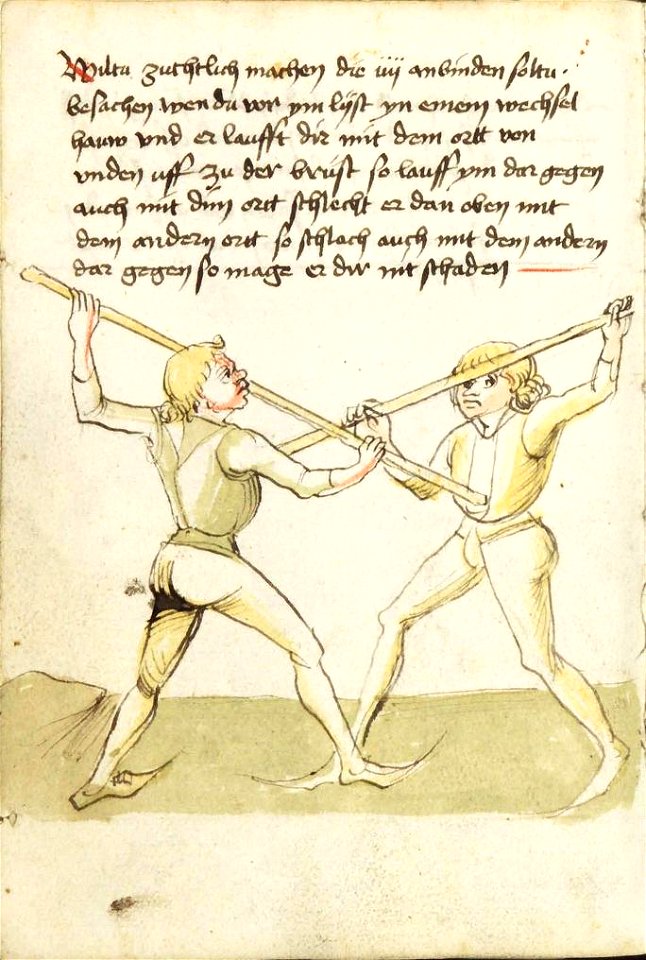 Wiltu zuchtlich machen die iiij anbinden soltu ·
besachen wen du vor ym lyst yn einem wechsel
hauw vnd er laufft dir mit dem ortt von
vnden uff zu der brust so lauff ym dar gegen
auch mit dim ortt schlecht er dan oben mit
dem andern ortt so schlach auch mit dem andern
dar gegen so mage er dir nit schaden